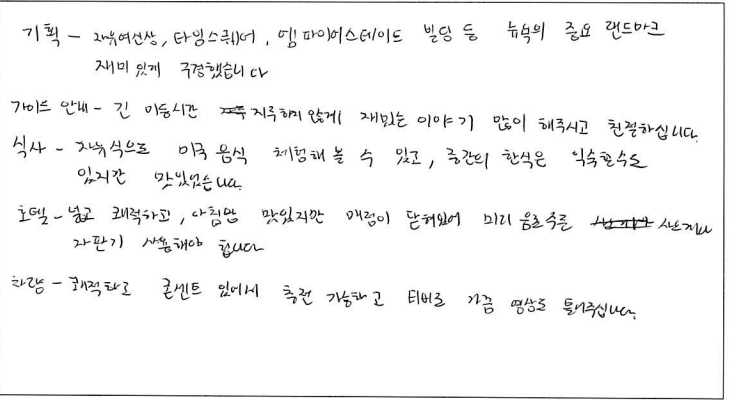 기획 - 자유여신상, 타임스퀘어, 엠파이어스테이트 빌딩 등 뉴욕의 중요 랜드마크
재미있게 구경했습니다
가이드 안내 - 긴 이동시간 지루하지 않게 재밌는 이야기 많이 해주시고 친절하십니다.
식사 - 자유식으로 미국 음식 체험해 볼 수 있고, 중간의 한식은 익숙할수도
있지만 맛있었습니다.
호텔 - 넓고 쾌적하고, 아침밥 맛있지만 매점이 닫혀있어 미리 음료수를
자판기 사용해야 합니다
차량 - 쾌적하고 콘센트 있어서 충전 가능하고 티비로 가끔 영상도 틀어주십니다.